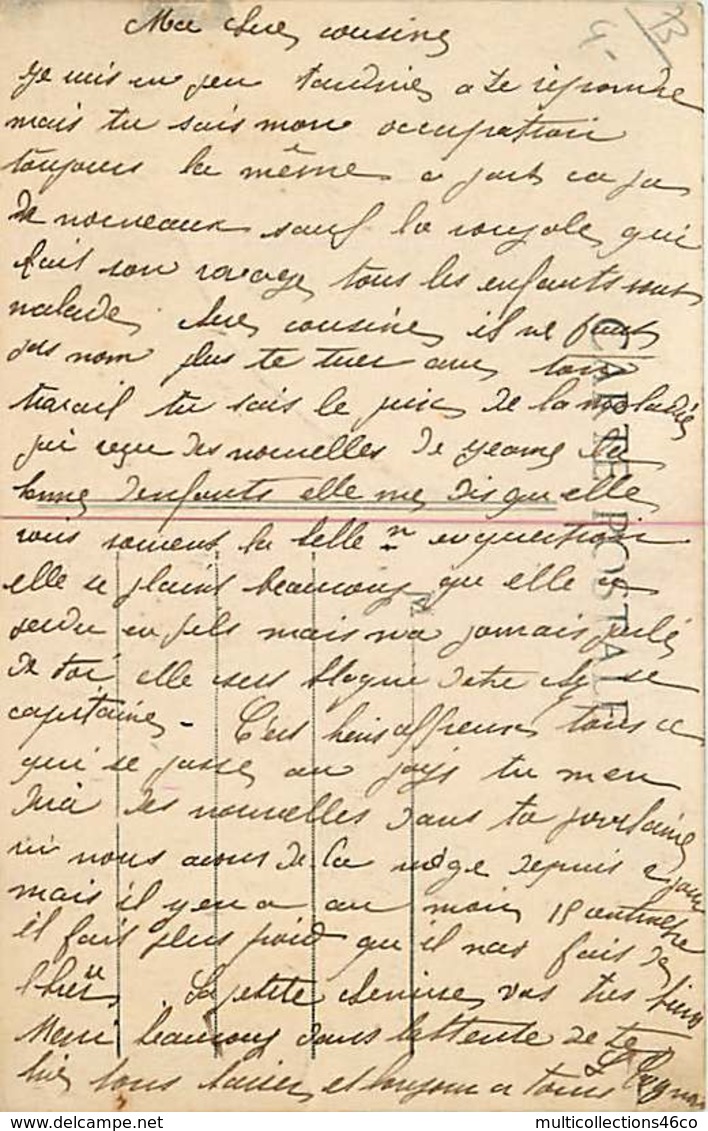 Ma chere cousine
Je suis un peu tardive a te repondre
mais tu sais mon occupation
toujours la même a part ca pa
de nouveaux sauf la rougole qui
fait son ravage tous les enfants sont
malade chere cousine il ne faut
pas nom plus te tuer avec ton
travail tu sais le prix de la maladie
jai reçu des nouvelles de
bonne denfants elle me dis qu elle
vois souvent la belle en question
elle se plaint beaucoup que elle a
perdu un fils mais na jamais parlé
de toi elle
capitaine - C'est affreux tous ce
qui se passe au pays tu men
dira des nouvelles dans ta prochaine
ici nous avons de la neige depuis 2 jours
mais il y en a au moin 15 centimetre
il fait plus froid qu il nas fait de
l'hiver La petite Denise vas tres bien
Merci beaucoup dans lattente de te
lire tous baiser et bonjour a tous
CARTE POSTALE
M
www.delcampe.net
multicollections46co